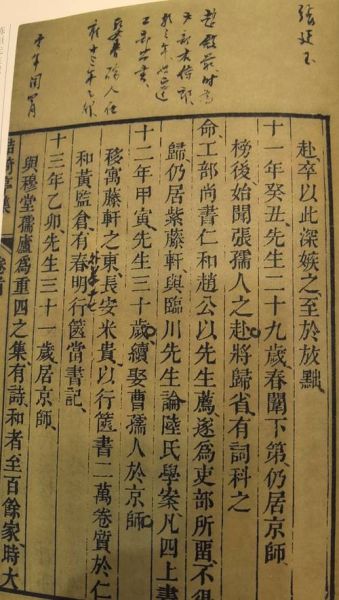 張廷玉
趙殿最時為
赴卒以此深嫉之至於放黜
十一年癸丑先生二十九歲春闈下第仍居京師
榜後始聞張孺人之赴將歸省有詞科之
命工部尚書仁和趙公以先生薦遂爲吏部所畱不得
歸仍居紫藤軒與臨川先生論陸氏學案凡四上書
十二年甲寅先生三十歲續娶曹孺人於京師
移寓藤軒之東長安米貴以行篋書二萬卷質於仁
和黃監倉有春明行篋當書記
十三年乙卯先生三十一歲居京師
與穆堂孺廬爲重四之集有詩和者至百餘家時大
鮚埼亭集
卷首